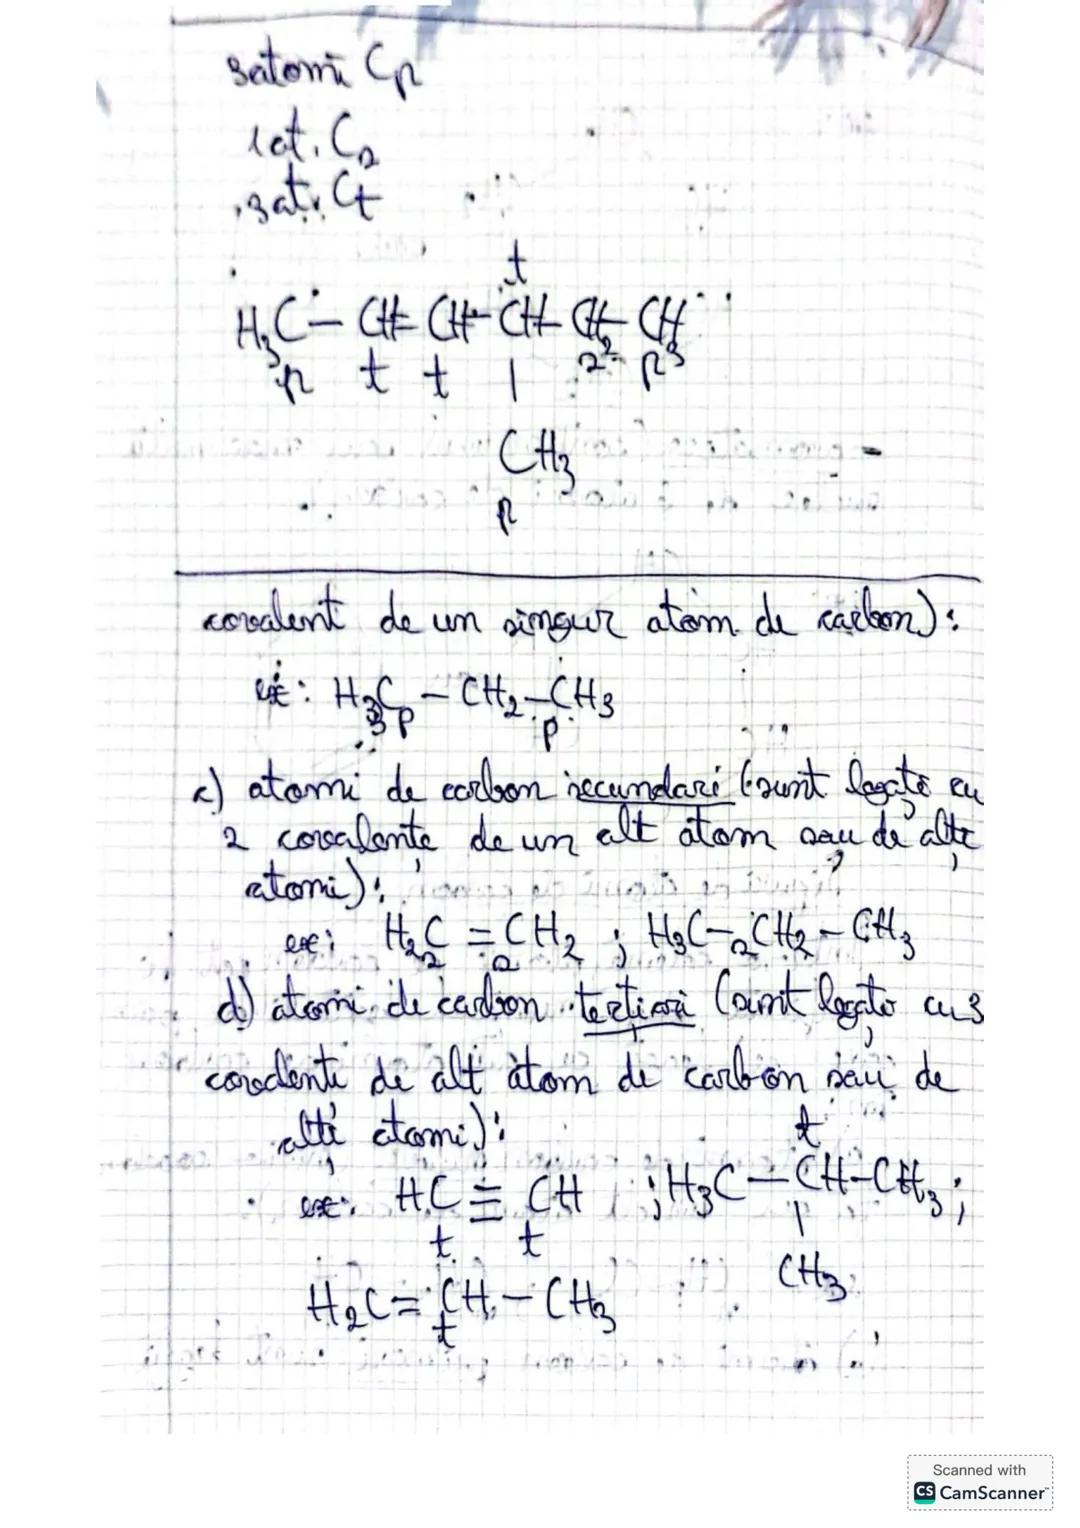 3 atomi Cp
1 at. Cs
3 at. Ct
t
H3C – CH = CH – CH – CH2 – CH3
p t t | s p
CH3
p
covalent de un singur atom de carbon):
ex: H3C – CH2 – CH3
p p
c) atomi de carbon secundari (sunt legați cu
2 covalențe de un alt atom sau de alți
atomi):
ex: H2C = CH2 ; H3C – CH2 – CH3
s s s
d) atomi de carbon terțiari (sunt legați cu 3
covalențe de alt atom de carbon sau de
alți atomi):
t
ex: HC ≡ CH ; H3C – CH – CH3 ;
t t |
CH3
H2C = CH – CH3
t
Scanned with
CS CamScanner